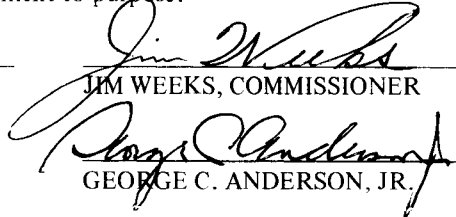 to purpose.
Jim Weeks
JIM WEEKS, COMMISSIONER
George C Anderson Jr
GEORGE C. ANDERSON, JR.